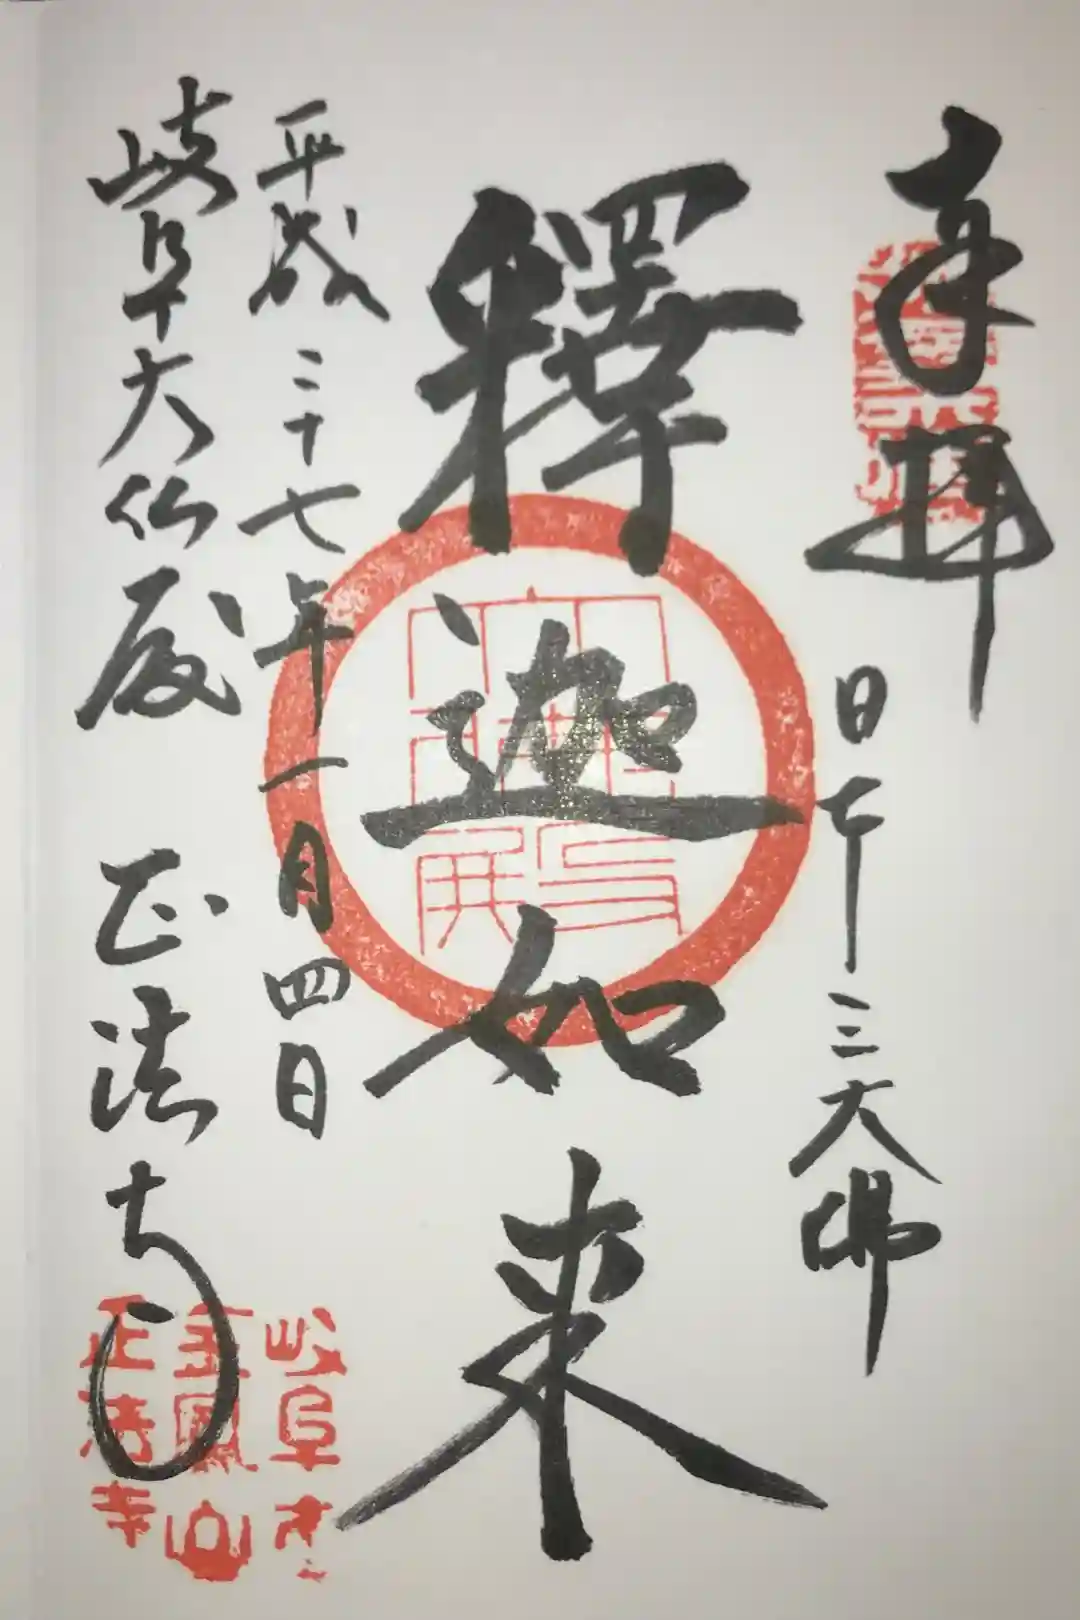 奉拝
日本三大佛
釋迦如来
平成二十七年一月四日
岐阜大仏殿 正法寺
岐阜市
金鳳山
正法寺